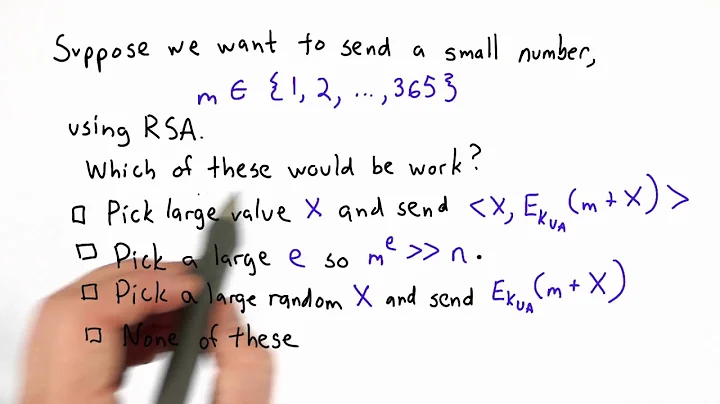 Suppose we want to send a small number,
m ∈ {1, 2, ..., 365}
using RSA.
Which of these would be work?
□ Pick large value X and send <X, E_{K_{UA}}(m + X)>
□ Pick a large e so m^e >> n.
□ Pick a large random X and send E_{K_{UA}}(m + X)
□ None of these